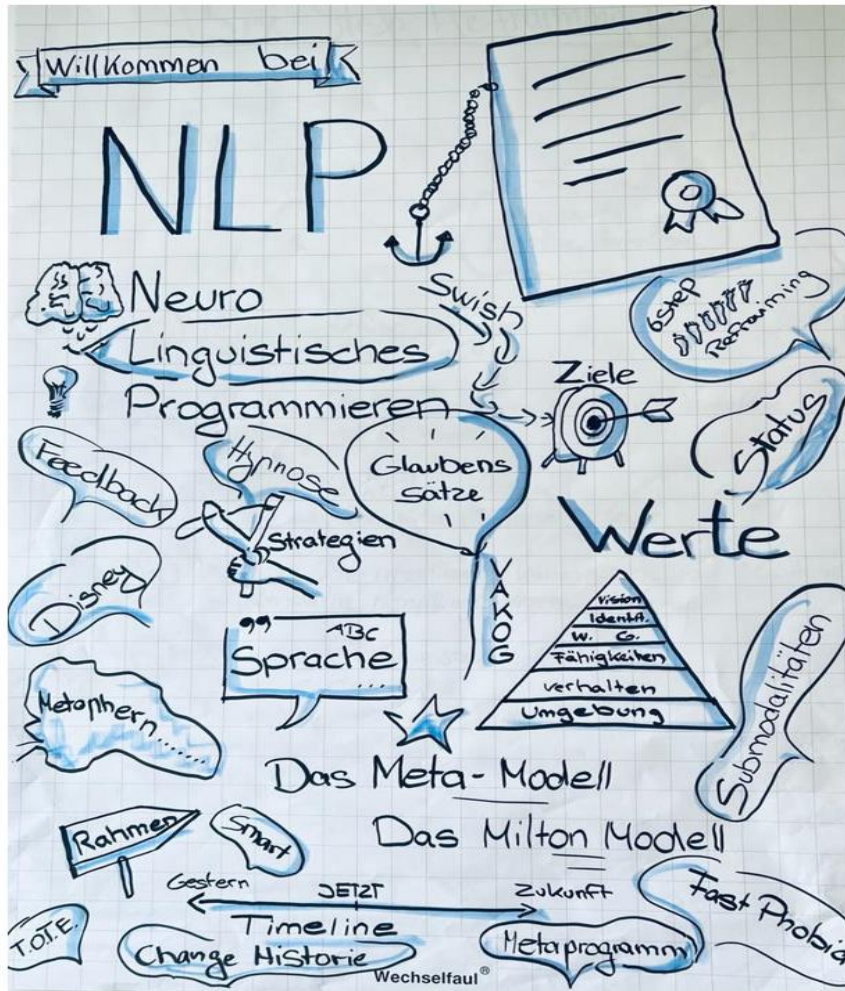 Willkommen bei
NLP
Neuro
Linguistisches
Programmieren
Swish
6step
Reframing
Ziele
Status
Feedback
Hypnose
Glaubens
sätze
Strategien
Werte
Disney
VAKOG
Vision
Identit.
W. G.
Fähigkeiten
Verhalten
Umgebung
Submodalitäten
" ABC
Sprache
...
Metaphern.......
Das Meta-Modell
Rahmen
Smart
Das Milton Modell
Gestern JETZT Zukunft
Timeline
Fast Phobia
T.O.T.E.
Change Historie
Metaprogramm
Wechselfaul®